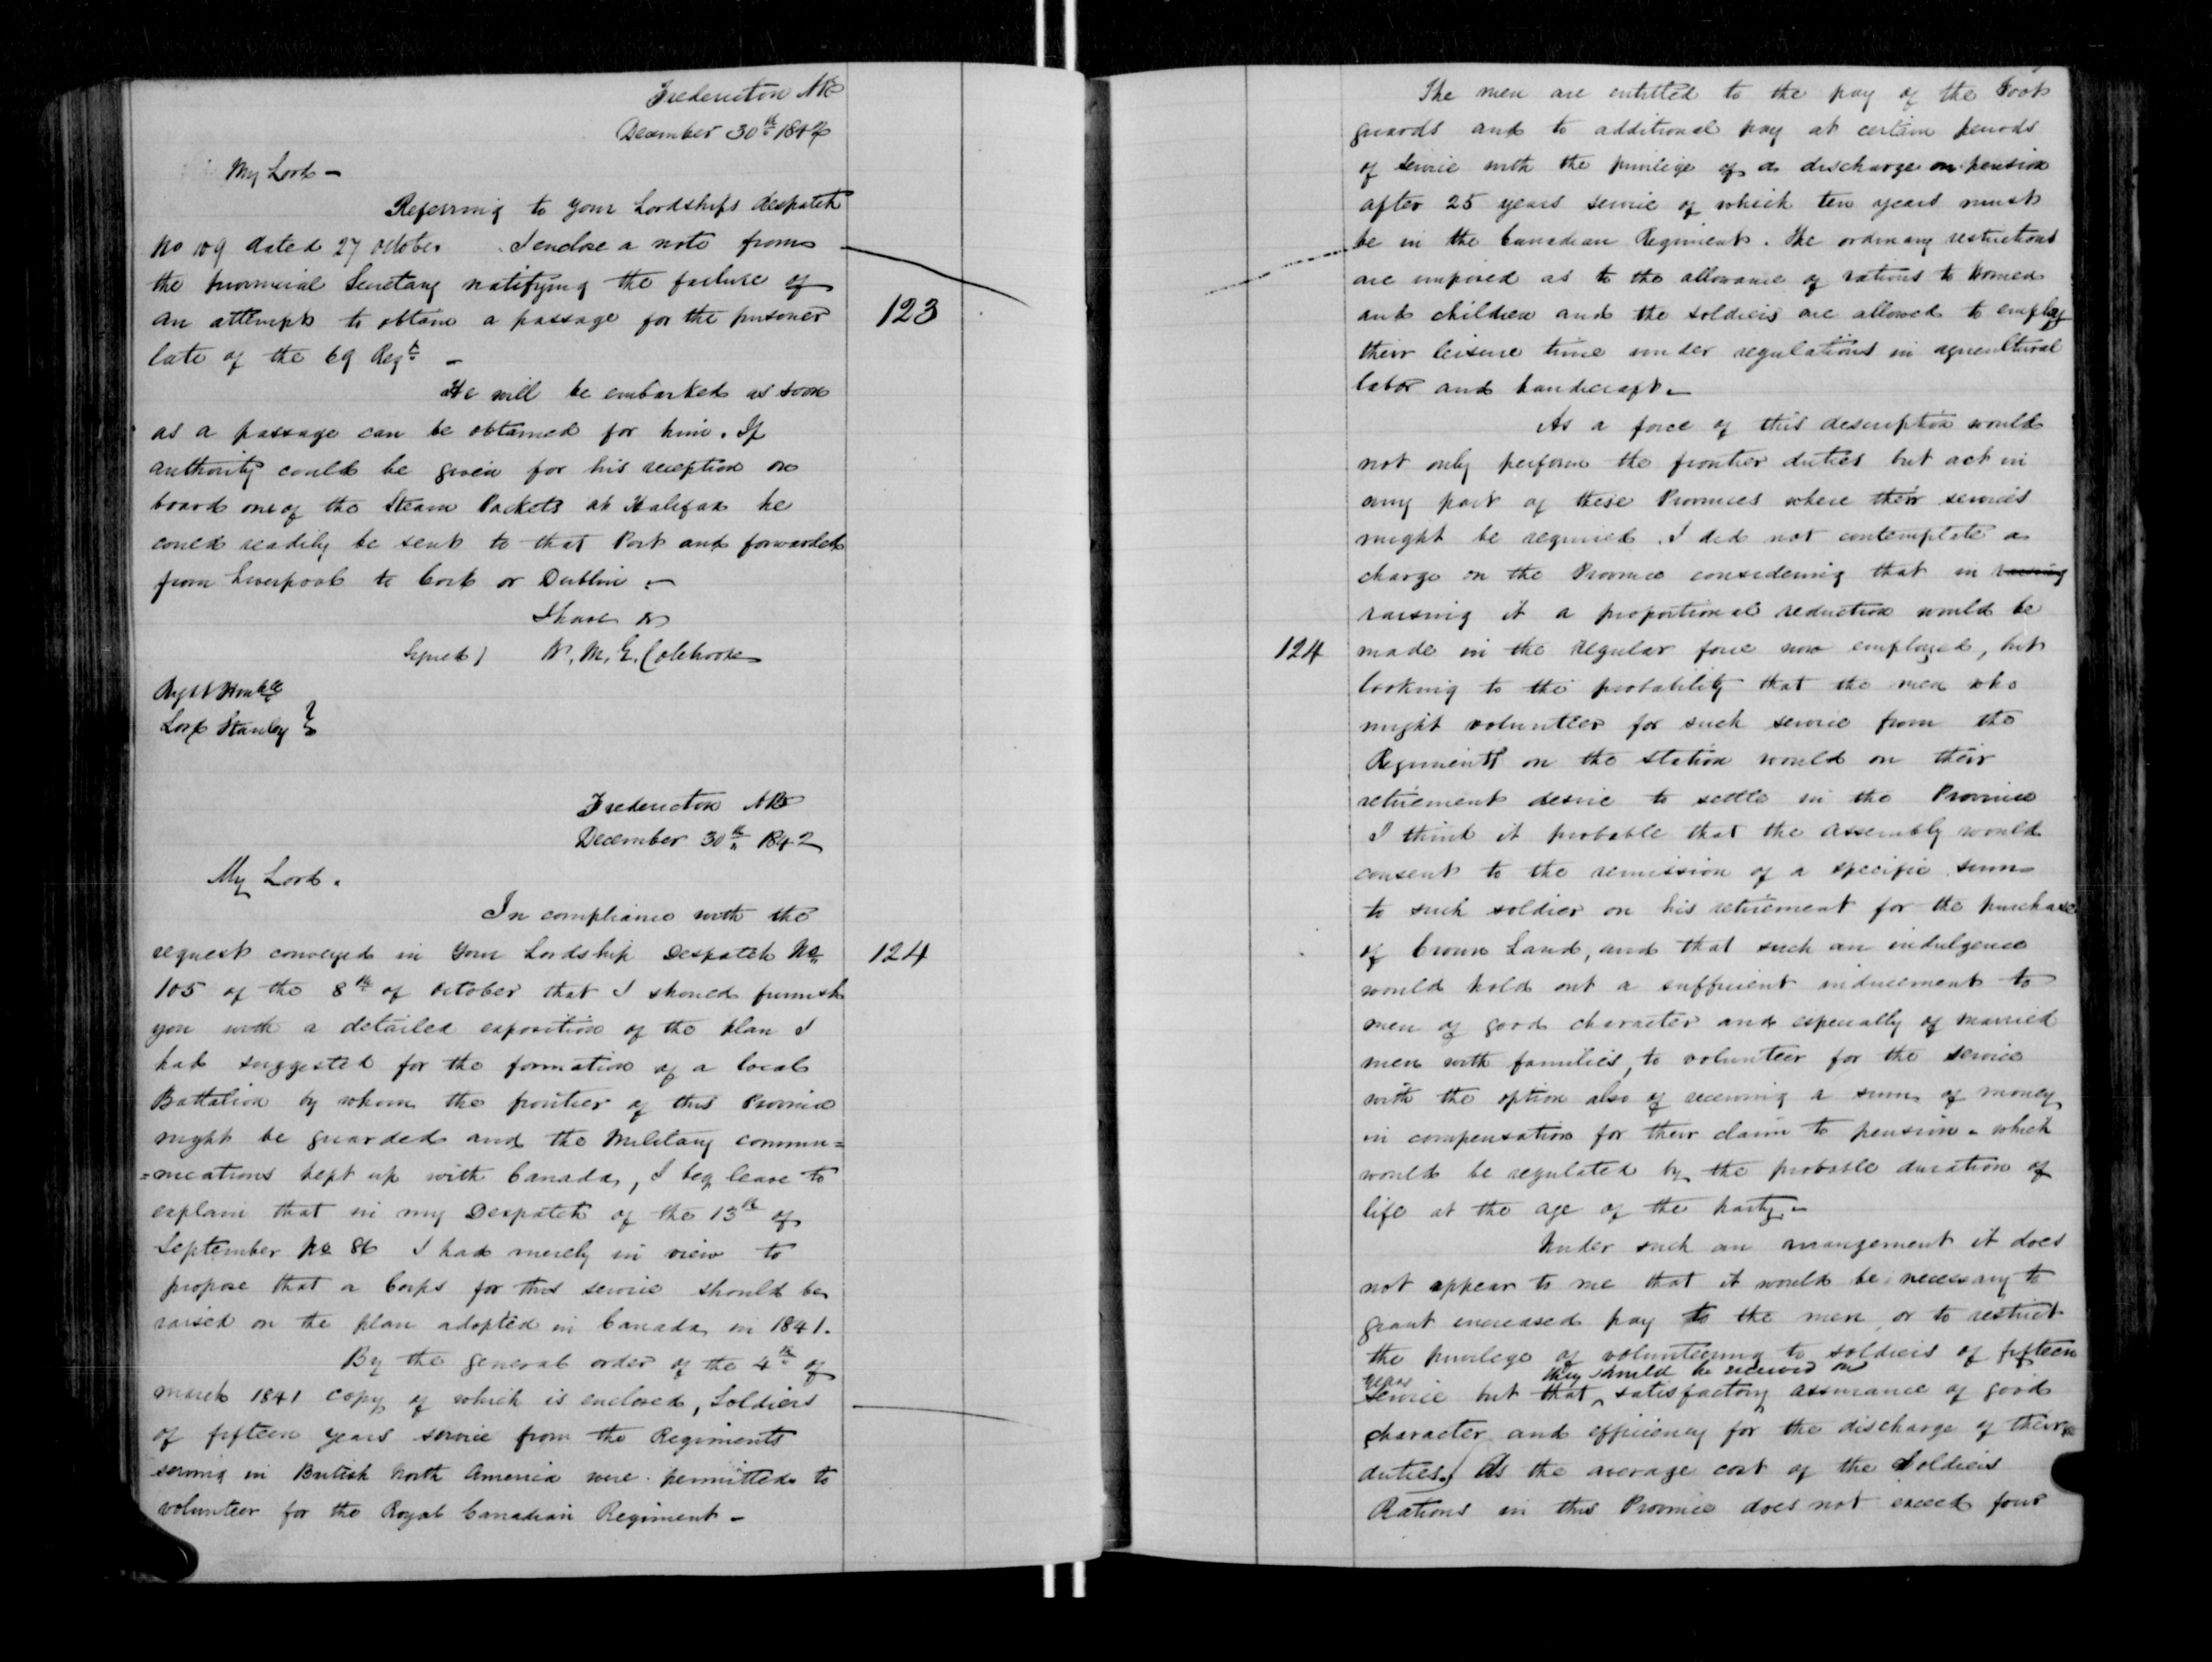 Fredericton NB
December 30th 1842
My Lord -
Referring to your Lordships despatch
No 109 dated 27 October I enclose a note from
the provincial Secretary notifying the failure of
an attempt to obtain a passage for the prisoner
late of the 69 Regt -
123
He will be embarked as soon
as a passage can be obtained for him. If
authority could be given for his reception on
board one of the Steam Packets at Halifax he
could readily be sent to that Port and forwarded
from Liverpool to Cork or Dublin -
I have &c
Signed) W. M. G. Colebrooke
Right Honble
Lord Stanley }
Fredericton NB
December 30th 1842
My Lord.
In compliance with the
request conveyed in your Lordship Despatch No
124
105 of the 8th of October that I should furnish
you with a detailed exposition of the plan I
had suggested for the formation of a local
Battalion by whom the frontier of this Province
might be guarded and the Military commu=
=nications kept up with Canada, I beg leave to
explain that in my Despatch of the 13th of
September No 86 I had merely in view to
propose that a Corps for this service should be
raised on the plan adopted in Canada in 1841.
By the general order of the 4th of
march 1841 copy of which is enclosed, Soldiers
of fifteen years service from the Regiments
serving in British North America were permitted to
volunteer for the Royal Canadian Regiment -
The men are entitled to the pay of the Foot
guards and to additional pay at certain periods
of service with the privilege of a discharge on pension
after 25 years service of which ten years must
be in the Canadian Regiment. The ordinary restrictions
are imposed as to the allowance of rations to Women
and children and the soldiers are allowed to employ
their leisure time under regulations in agricultural
labor and handicraft -
As a force of this description would
not only perform the frontier duties but act in
any part of these Provinces where their services
might be required. I did not contemplate a
charge on the Province considering that in raising
raising it a proportional reduction would be
124
made in the regular force now employed, but
looking to the probability that the men who
might volunteer for such service from the
Regiments on the station would on their
retirement desire to settle in the Province
I think it probable that the Assembly would
consent to the remission of a specific sum
to such soldier on his retirement for the purchase
of Crown Land, and that such an indulgence
would hold out a sufficient inducement to
men of good character and especially of married
men with families, to volunteer for the service
with the option also of receiving a sum of money
in compensation for their claim to pension - which
would be regulated by the probable duration of
life at the age of the party -
Under such an arrangement it does
not appear to me that it would be necessary to
grant increased pay to the men, or to restrict
the privilege of volunteering to soldiers of fifteen
years they should be received on
service but that satisfactory assurance of good
character and efficiency for the discharge of their
duties. As the average cost of the Soldiers
Rations in this Province does not exceed four